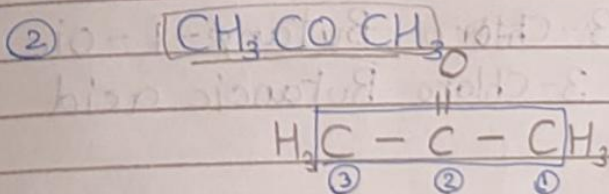 ② CH₃ CO CH₃
O
||
H₃C – C – CH₃
③ ② ①